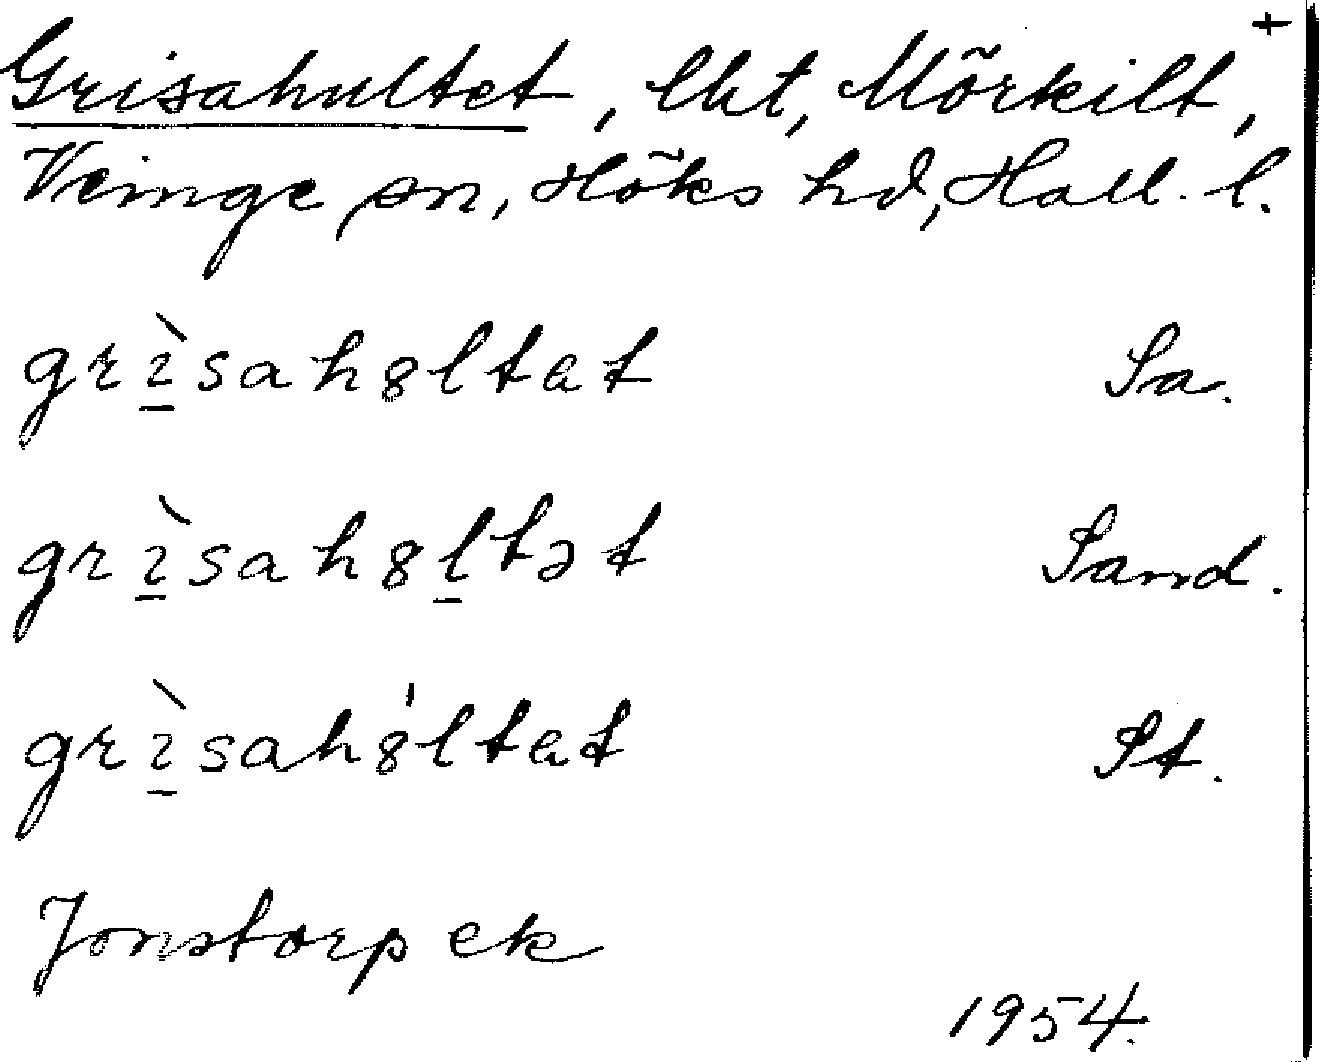 Grisahultet, lht, Mörkilt, +
Veinge sn, Höks hd, Hall. l.
grìsahȣltat Sa.
grìsahȣltət Sand.
grìsahȣ̍ltat St.
Jonstorp ek
1954.